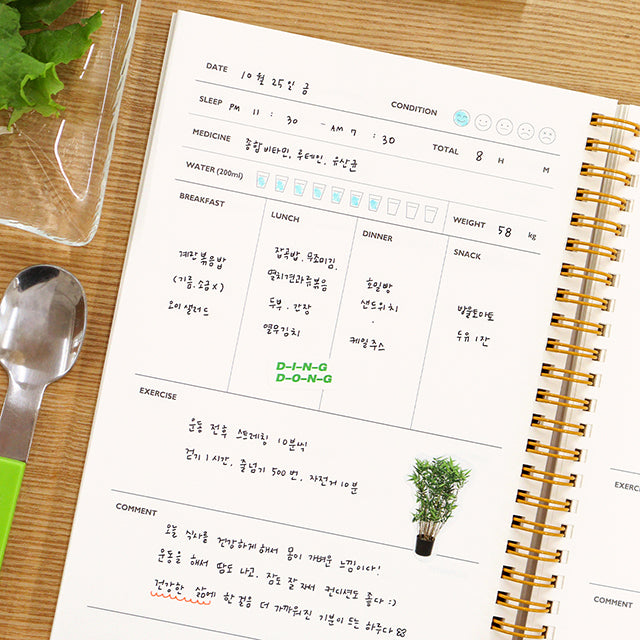 DATE 10월 25일 금
CONDITION
SLEEP PM 11 : 30 - AM 7 : 30 TOTAL 8 H M
MEDICINE 종합비타민, 루테인, 유산균
WATER (200ml)
WEIGHT 58 kg
BREAKFAST
계란볶음밥
(기름, 소금 X)
오이샐러드
LUNCH
잡곡밥, 무조미김,
멸치견과류볶음
두부, 간장
열무김치
D-I-N-G
D-O-N-G
DINNER
호밀빵
샌드위치
케일주스
SNACK
방울토마토
두유 1잔
EXERCISE
운동 전후 스트레칭 10분씩
걷기 1시간, 줄넘기 500번, 자전거 10분
COMMENT
오늘 식사를 건강하게 해서 몸이 가벼운 느낌이다!
운동을 해서 땀도 나고, 잠도 잘 자서 컨디션도 좋다 :)
건강한 삶에 한 걸음 더 가까워진 기분이 드는 하루다
EXERCI
COMMENT